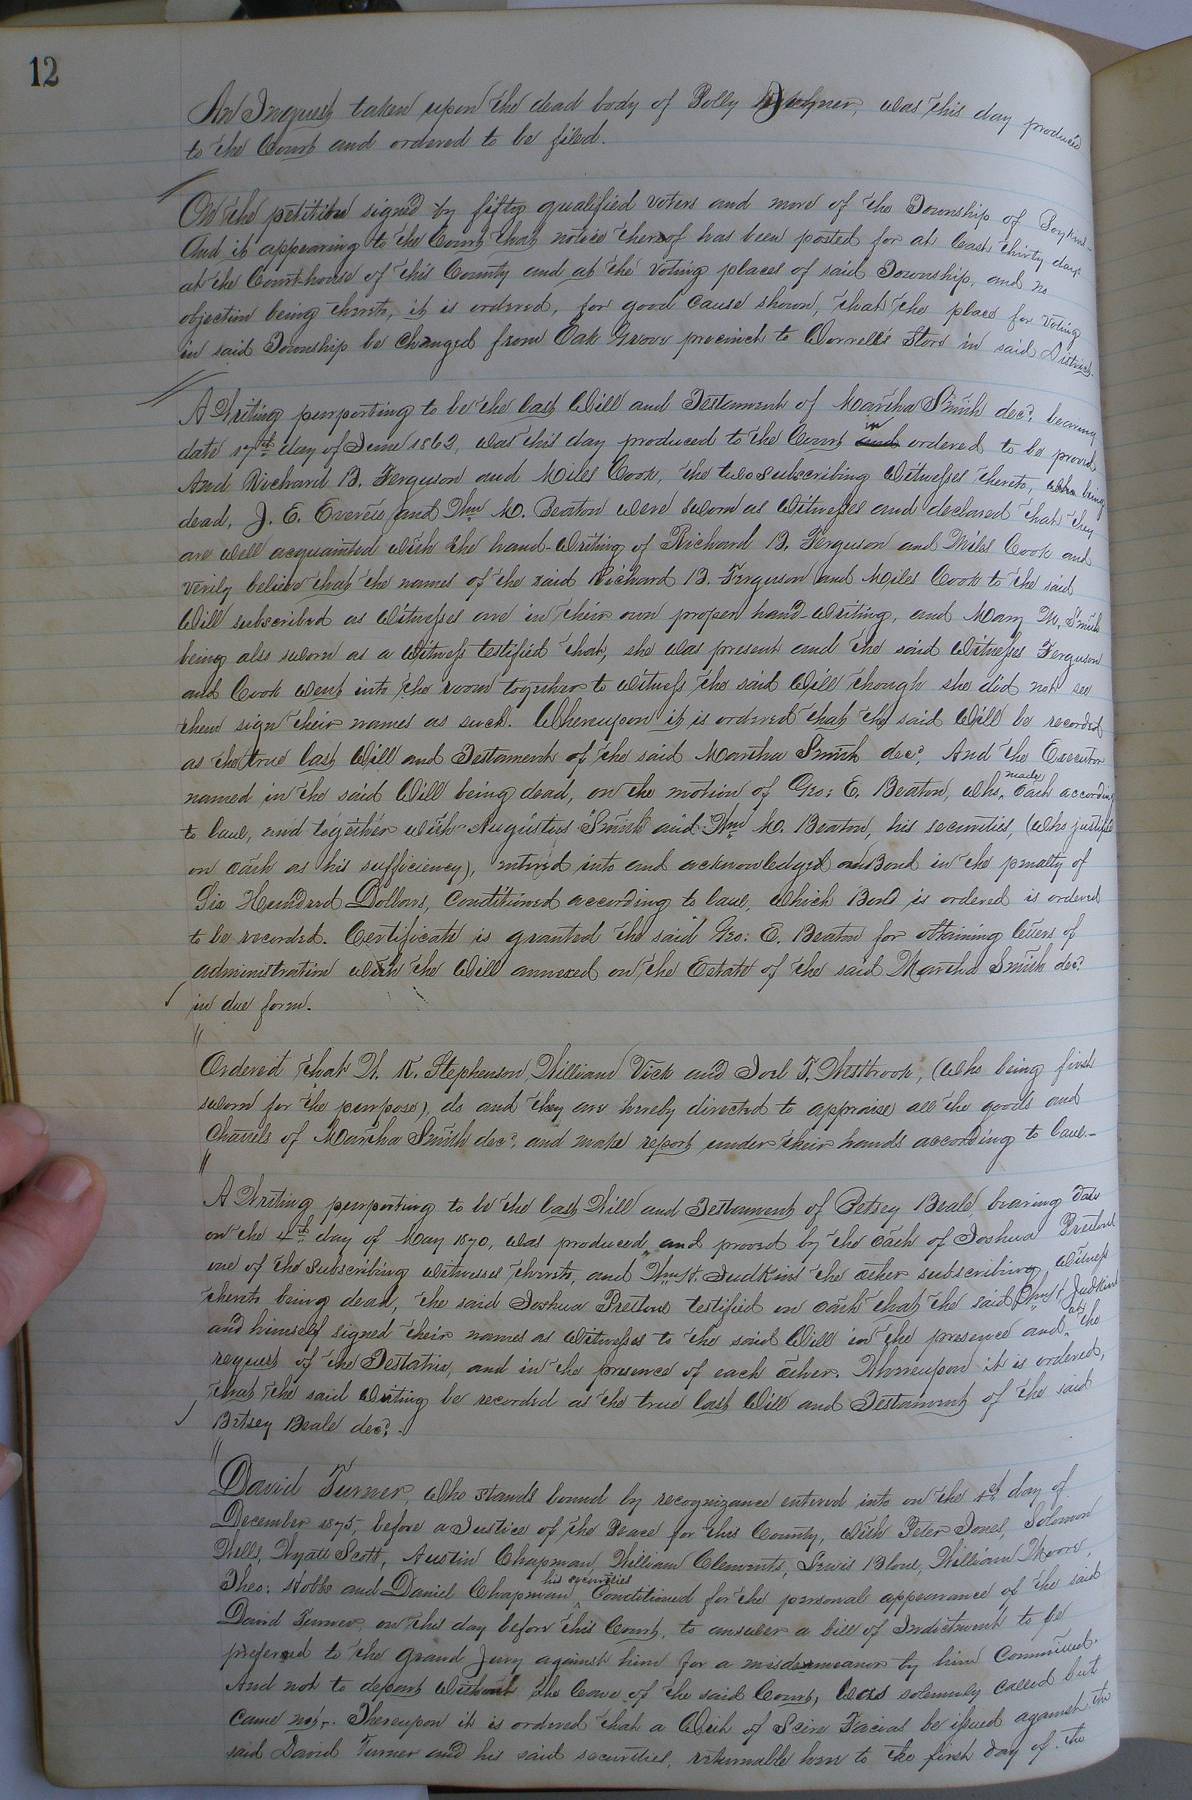 12
An Inquest taken upon the dead body of Polly Joyner, was this day produced
to the Court and ordered to be filed.
On the petition signed by fifty qualified voters and more of the Township of Boykins
And it appearing to the Court that notice thereof has been posted for at least thirty days
at the Court-house of this County and at the voting places of said Township, and no
objection being thereto, it is ordered, for good cause shown, that the place for voting
in said Township be changed from Oak Grove precinct to Worrell's Store in said District.
A Writing purporting to be the last Will and Testament of Martha Smith decd. bearing
date 17th day of June 1862, was this day produced to the Court and in ordered to be proved
And Richard B. Ferguson and Miles Cook, the two subscribing Witnesses thereto, being
dead, J. E. Everett and Wm. D. Beaton were sworn as Witnesses and declared that they
are well acquainted with the hand-writing of Richard B. Ferguson and Miles Cook and
verily believe that the names of the said Richard B. Ferguson and Miles Cook to the said
Will subscribed as Witnesses are in their own proper hand-writing, and Mary M. Smith
being also sworn as a Witness testified that, she was present and the said Witnesses Ferguson
and Cook went into the room together to witness the said Will though she did not see
them sign their names as such. Whereupon it is ordered that the said Will be recorded
as the true last Will and Testament of the said Martha Smith decd. And the Executor
named in the said Will being dead, on the motion of Geo: E. Beaton, who made Oath according
to law, and together with Augustus Smith and Wm D. Beaton, his securities, (who justified
on oath as his sufficiency), entered into and acknowledged a Bond in the penalty of
Six Hundred Dollars, Conditioned according to law, which Bond is ordered is ordered
to be recorded. Certificate is granted the said Geo: E. Beaton for obtaining letters of
administration with the Will annexed on the Estate of the said Martha Smith decd.
in due form.
Ordered that W. K. Stephenson, William Vick and Joel T. Westbrook, (who being first
sworn for the purpose), do and they are hereby directed to appraise all the goods and
Chattels of Martha Smith decd. and make report under their hands according to law.
A Writing purporting to be the last Will and Testament of Betsey Beale, bearing date
on the 4th day of May 1870, was produced, and proved by the Oath of Joshua Pretlow
one of the subscribing witnesses thereto, and Wm H. Judkins the other subscribing witness
thereto being dead, the said Joshua Pretlow testified on oath that the said Wm H Judkins
and himself signed their names as Witnesses to the said Will in the presence and at the
request of the Testatrix, and in the presence of each other. Whereupon it is ordered,
that the said Writing be recorded as the true last Will and Testament of the said
Betsey Beale decd.
David Turner, who stands bound by recognizance entered into on the day of
December 1875, before a Justice of the Peace for this County, with Peter Jones, Solomon
Wells, Wyatt Scott, Austin Chapman, William Clements, Lewis Blow, William Moore,
Theo: Hobbs and Daniel Chapman his securities Conditioned for the personal appearance of the said
David Turner on this day before this Court, to answer a bill of Indictment to be
prefered to the Grand Jury against him for a misdemeanor by him Committed.
And not to depart without the leave of the said Court, was solemnly called but
came not. Thereupon it is ordered that a Writ of Scire Facias be issued against the
said David Turner and his said securities, returnable here to the first day of the